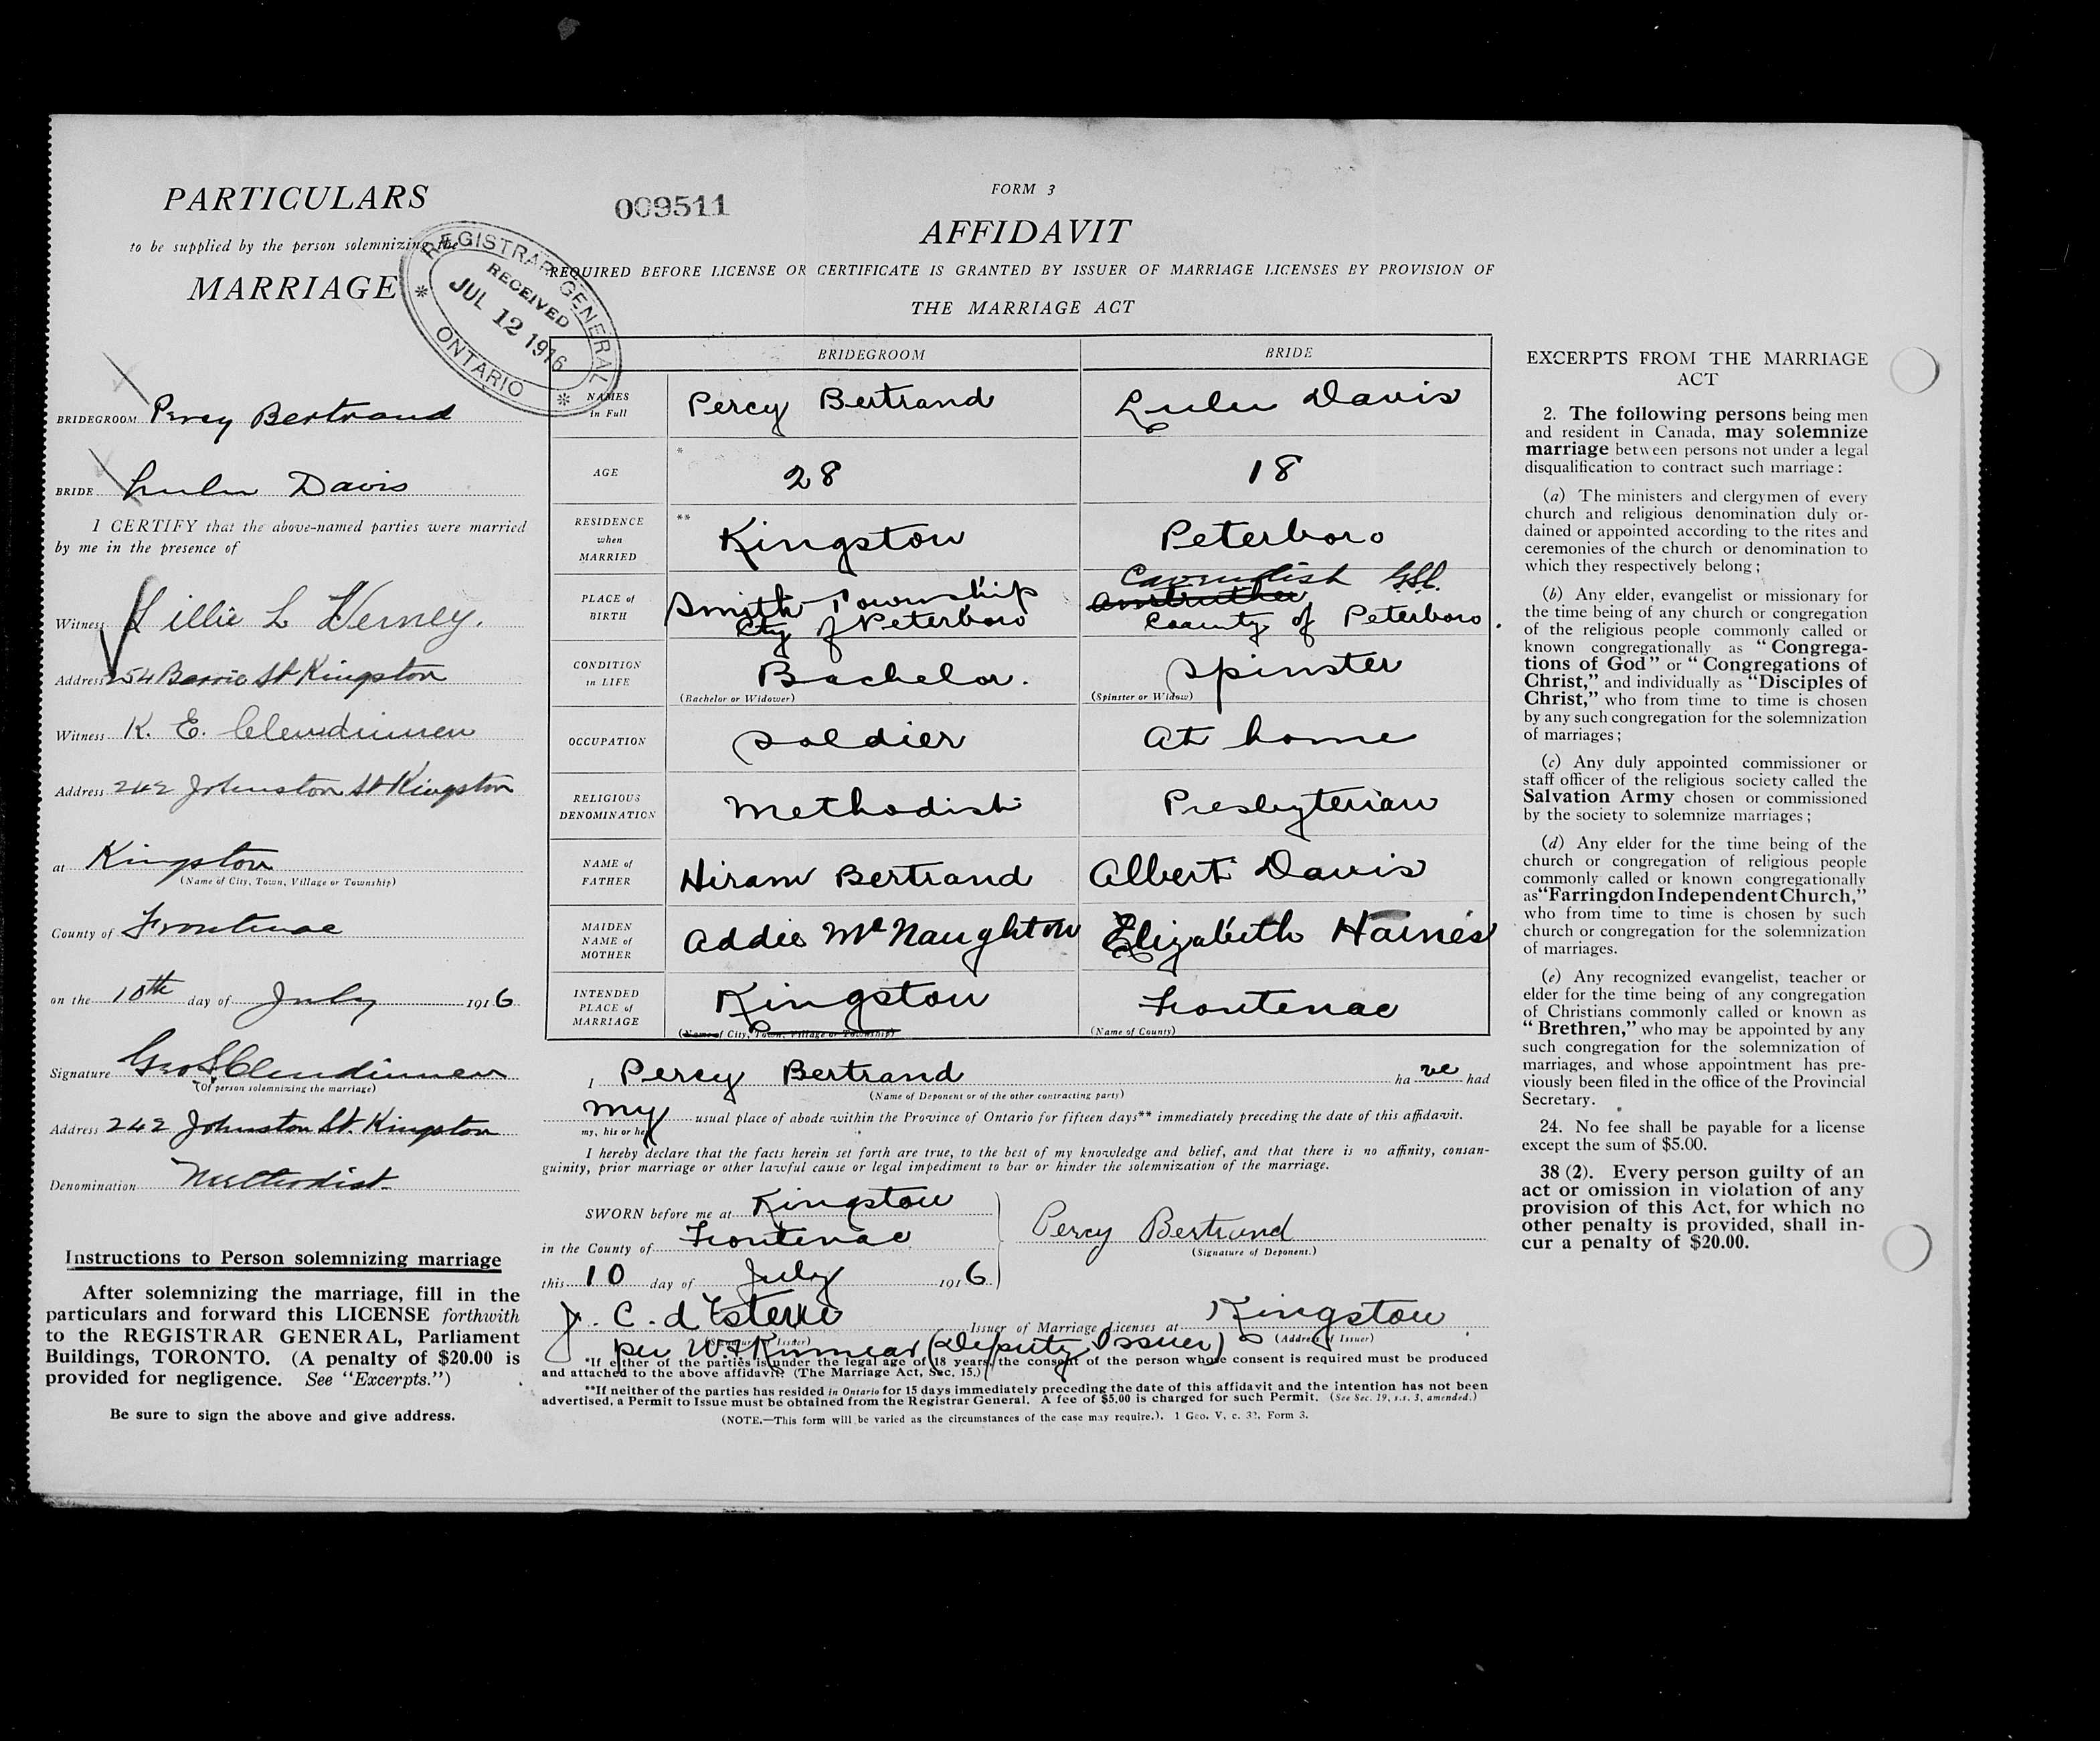 PARTICULARS
to be supplied by the person solemnizing the
MARRIAGE
REGISTRAR GENERAL
RECEIVED
JUL 12 1916
ONTARIO
BRIDEGROOM Percy Bertrand
BRIDE Lulu Davis
I CERTIFY that the above-named parties were married
by me in the presence of
Witness Lillie L
Address 254 Barrie St Kingston
Witness K. E. Clendinnen
Address 242 Johnston St Kingston
at Kingston
(Name of City, Town, Village or Township)
County of Frontenac
on the 10th day of July 1916
Signature Geo S Clendinnen
(Of person solemnizing the marriage)
Address 242 Johnston St. Kingston
Denomination Methodist
Instructions to Person solemnizing marriage
After solemnizing the marriage, fill in the
particulars and forward this LICENSE forthwith
to the REGISTRAR GENERAL, Parliament
Buildings, TORONTO. (A penalty of $20.00 is
provided for negligence. See "Excerpts.")
Be sure to sign the above and give address.
009511
FORM 3
AFFIDAVIT
REQUIRED BEFORE LICENSE OR CERTIFICATE IS GRANTED BY ISSUER OF MARRIAGE LICENSES BY PROVISION OF
THE MARRIAGE ACT
BRIDEGROOM BRIDE
NAMES in Full Percy Bertrand Lulu Davis
AGE * 28 18
RESIDENCE when MARRIED ** Kingston Peterboro
PLACE of BIRTH Smith Township Cty of Peterboro Cavendish Anstruther County of Peterboro.
CONDITION in LIFE Bachelor. (Bachelor or Widower) Spinster (Spinster or Widow)
OCCUPATION Soldier At home
RELIGIOUS DENOMINATION Methodist Presbyterian
NAME of FATHER Hiram Bertrand Albert Davis
MAIDEN NAME of MOTHER Addie McNaughton Elizabeth Haines
INTENDED PLACE of MARRIAGE Kingston (Name of City, Town, Village or Township) Frontenac (Name of County)
I Percy Bertrand have had
(Name of Deponent or of the other contracting party)
my usual place of abode within the Province of Ontario for fifteen days** immediately preceding the date of this affidavit.
my, his or her
I hereby declare that the facts herein set forth are true, to the best of my knowledge and belief, and that there is no affinity, consan-
guinity, prior marriage or other lawful cause or legal impediment to bar or hinder the solemnization of the marriage.
SWORN before me at Kingston
in the County of Frontenac
Percy Bertrand
(Signature of Deponent.)
this 10 day of July 1916
J. C. d'Esterre Issuer of Marriage Licenses at Kingston
(Address of Issuer)
per W. F. Kinnear (Deputy Issuer)
*If either of the parties is under the legal age of 18 years, the consent of the person whose consent is required must be produced
and attached to the above affidavit. (The Marriage Act, Sec. 15.)
**If neither of the parties has resided in Ontario for 15 days immediately preceding the date of this affidavit and the intention has not been
advertised, a Permit to Issue must be obtained from the Registrar General. A fee of $5.00 is charged for such Permit. (See Sec. 19, s.s. 3, amended.)
(NOTE.—This form will be varied as the circumstances of the case may require.). 1 Geo. V, c. 32, Form 3.
EXCERPTS FROM THE MARRIAGE
ACT
2. The following persons being men
and resident in Canada, may solemnize
marriage between persons not under a legal
disqualification to contract such marriage:
(a) The ministers and clergymen of every
church and religious denomination duly or-
dained or appointed according to the rites and
ceremonies of the church or denomination to
which they respectively belong;
(b) Any elder, evangelist or missionary for
the time being of any church or congregation
of the religious people commonly called or
known congregationally as "Congrega-
tions of God" or "Congregations of
Christ," and individually as "Disciples of
Christ," who from time to time is chosen
by any such congregation for the solemnization
of marriages;
(c) Any duly appointed commissioner or
staff officer of the religious society called the
Salvation Army chosen or commissioned
by the society to solemnize marriages;
(d) Any elder for the time being of the
church or congregation of religious people
commonly called or known congregationally
as "Farringdon Independent Church,"
who from time to time is chosen by such
church or congregation for the solemnization
of marriages.
(e) Any recognized evangelist, teacher or
elder for the time being of any congregation
of Christians commonly called or known as
"Brethren," who may be appointed by any
such congregation for the solemnization of
marriages, and whose appointment has pre-
viously been filed in the office of the Provincial
Secretary.
24. No fee shall be payable for a license
except the sum of $5.00.
38 (2). Every person guilty of an
act or omission in violation of any
provision of this Act, for which no
other penalty is provided, shall in-
cur a penalty of $20.00.